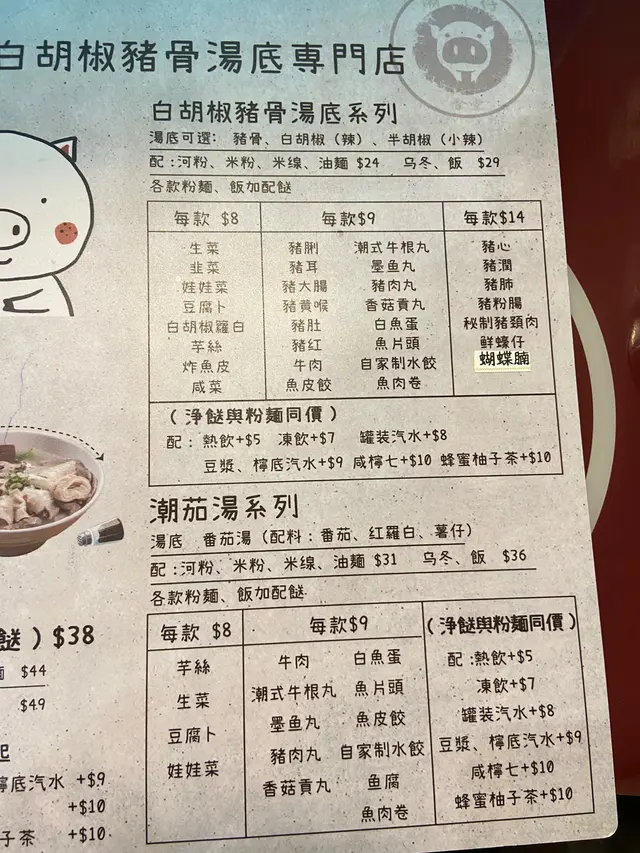 白胡椒豬骨湯底專門店
白胡椒豬骨湯底系列
湯底可選: 豬骨、白胡椒（辣）、半胡椒（小辣）
配:河粉、米粉、米線、油麵 $24 乌冬、飯 $29
各款粉麵、飯加配餸
每款 $8 每款$9 每款$14
生菜 豬脷 潮式牛根丸 豬心
韭菜 豬耳 墨鱼丸 豬潤
娃娃菜 豬大腸 豬肉丸 豬肺
豆腐卜 豬黃喉 香菇貢丸 豬粉腸
白胡椒羅白 豬肚 白魚蛋 秘制豬頸肉
芋絲 豬紅 魚片頭 鮮蠔仔
炸魚皮 牛肉 自家制水餃 蝴蝶腩
咸菜 魚皮餃 魚肉卷
（淨餸與粉麵同價）
配: 熱飲+$5 凍飲+$7 罐裝汽水+$8
豆漿、檸底汽水+$9 咸檸七+$10 蜂蜜柚子茶+$10
潮茄湯系列
湯底 番茄湯（配料：番茄、红羅白、薯仔）
配:河粉、米粉、米线、油麵 $31 乌冬、飯 $36
各款粉麵、飯加配餸
每款 $8 每款$9 （淨餸與粉麵同價）
芋絲 牛肉 白魚蛋 配:熱飲+$5
生菜 潮式牛根丸 魚片頭 凍飲+$7
豆腐卜 墨鱼丸 魚皮餃 罐裝汽水+$8
娃娃菜 豬肉丸 自家制水餃 豆漿、檸底汽水+$9
香菇貢丸 鱼腐 咸檸七+$10
魚肉卷 蜂蜜柚子茶+$10
餸）$38
$44
$49
起
檸底汽水 +$9
+$10
子茶 +$10